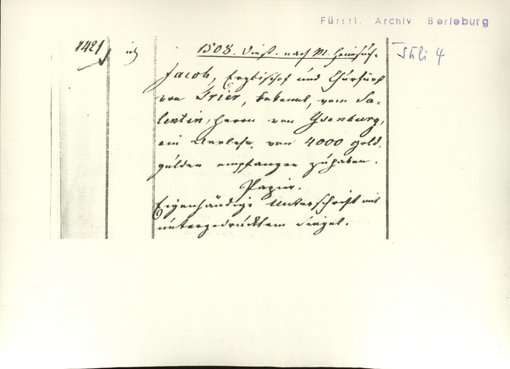 Fürstl. Archiv Berleburg
1421
1508. Dinst. nach M. Heimsuch.
Juli 4
Jacob, Erzbischof und Churfürst
von Trier, bekennt, vom Sa-
lentin, Herrn von Ysenburg,
ein Anlehn von 4000 gold-
gülden empfangen zu haben.
Papier.
Eigenhändige Unterschrift mit
untergedrücktem Siegel.